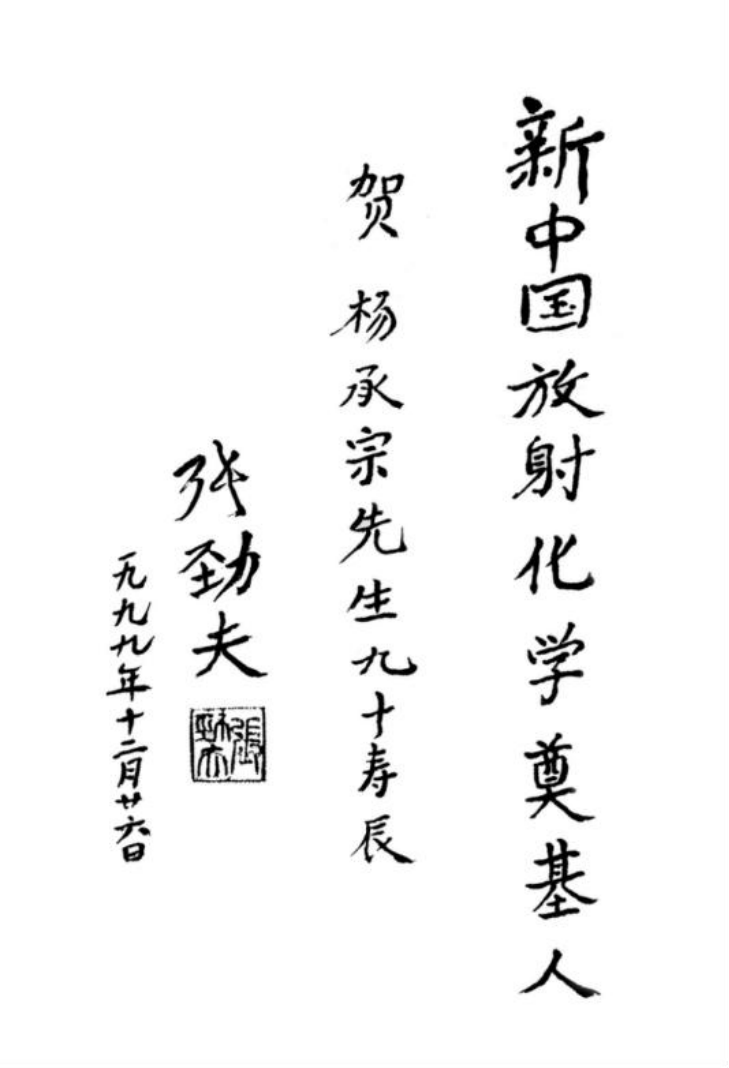 新中国放射化学奠基人
贺 杨承宗先生九十寿辰
张劲夫
一九九九年十二月廿六日
張勁夫